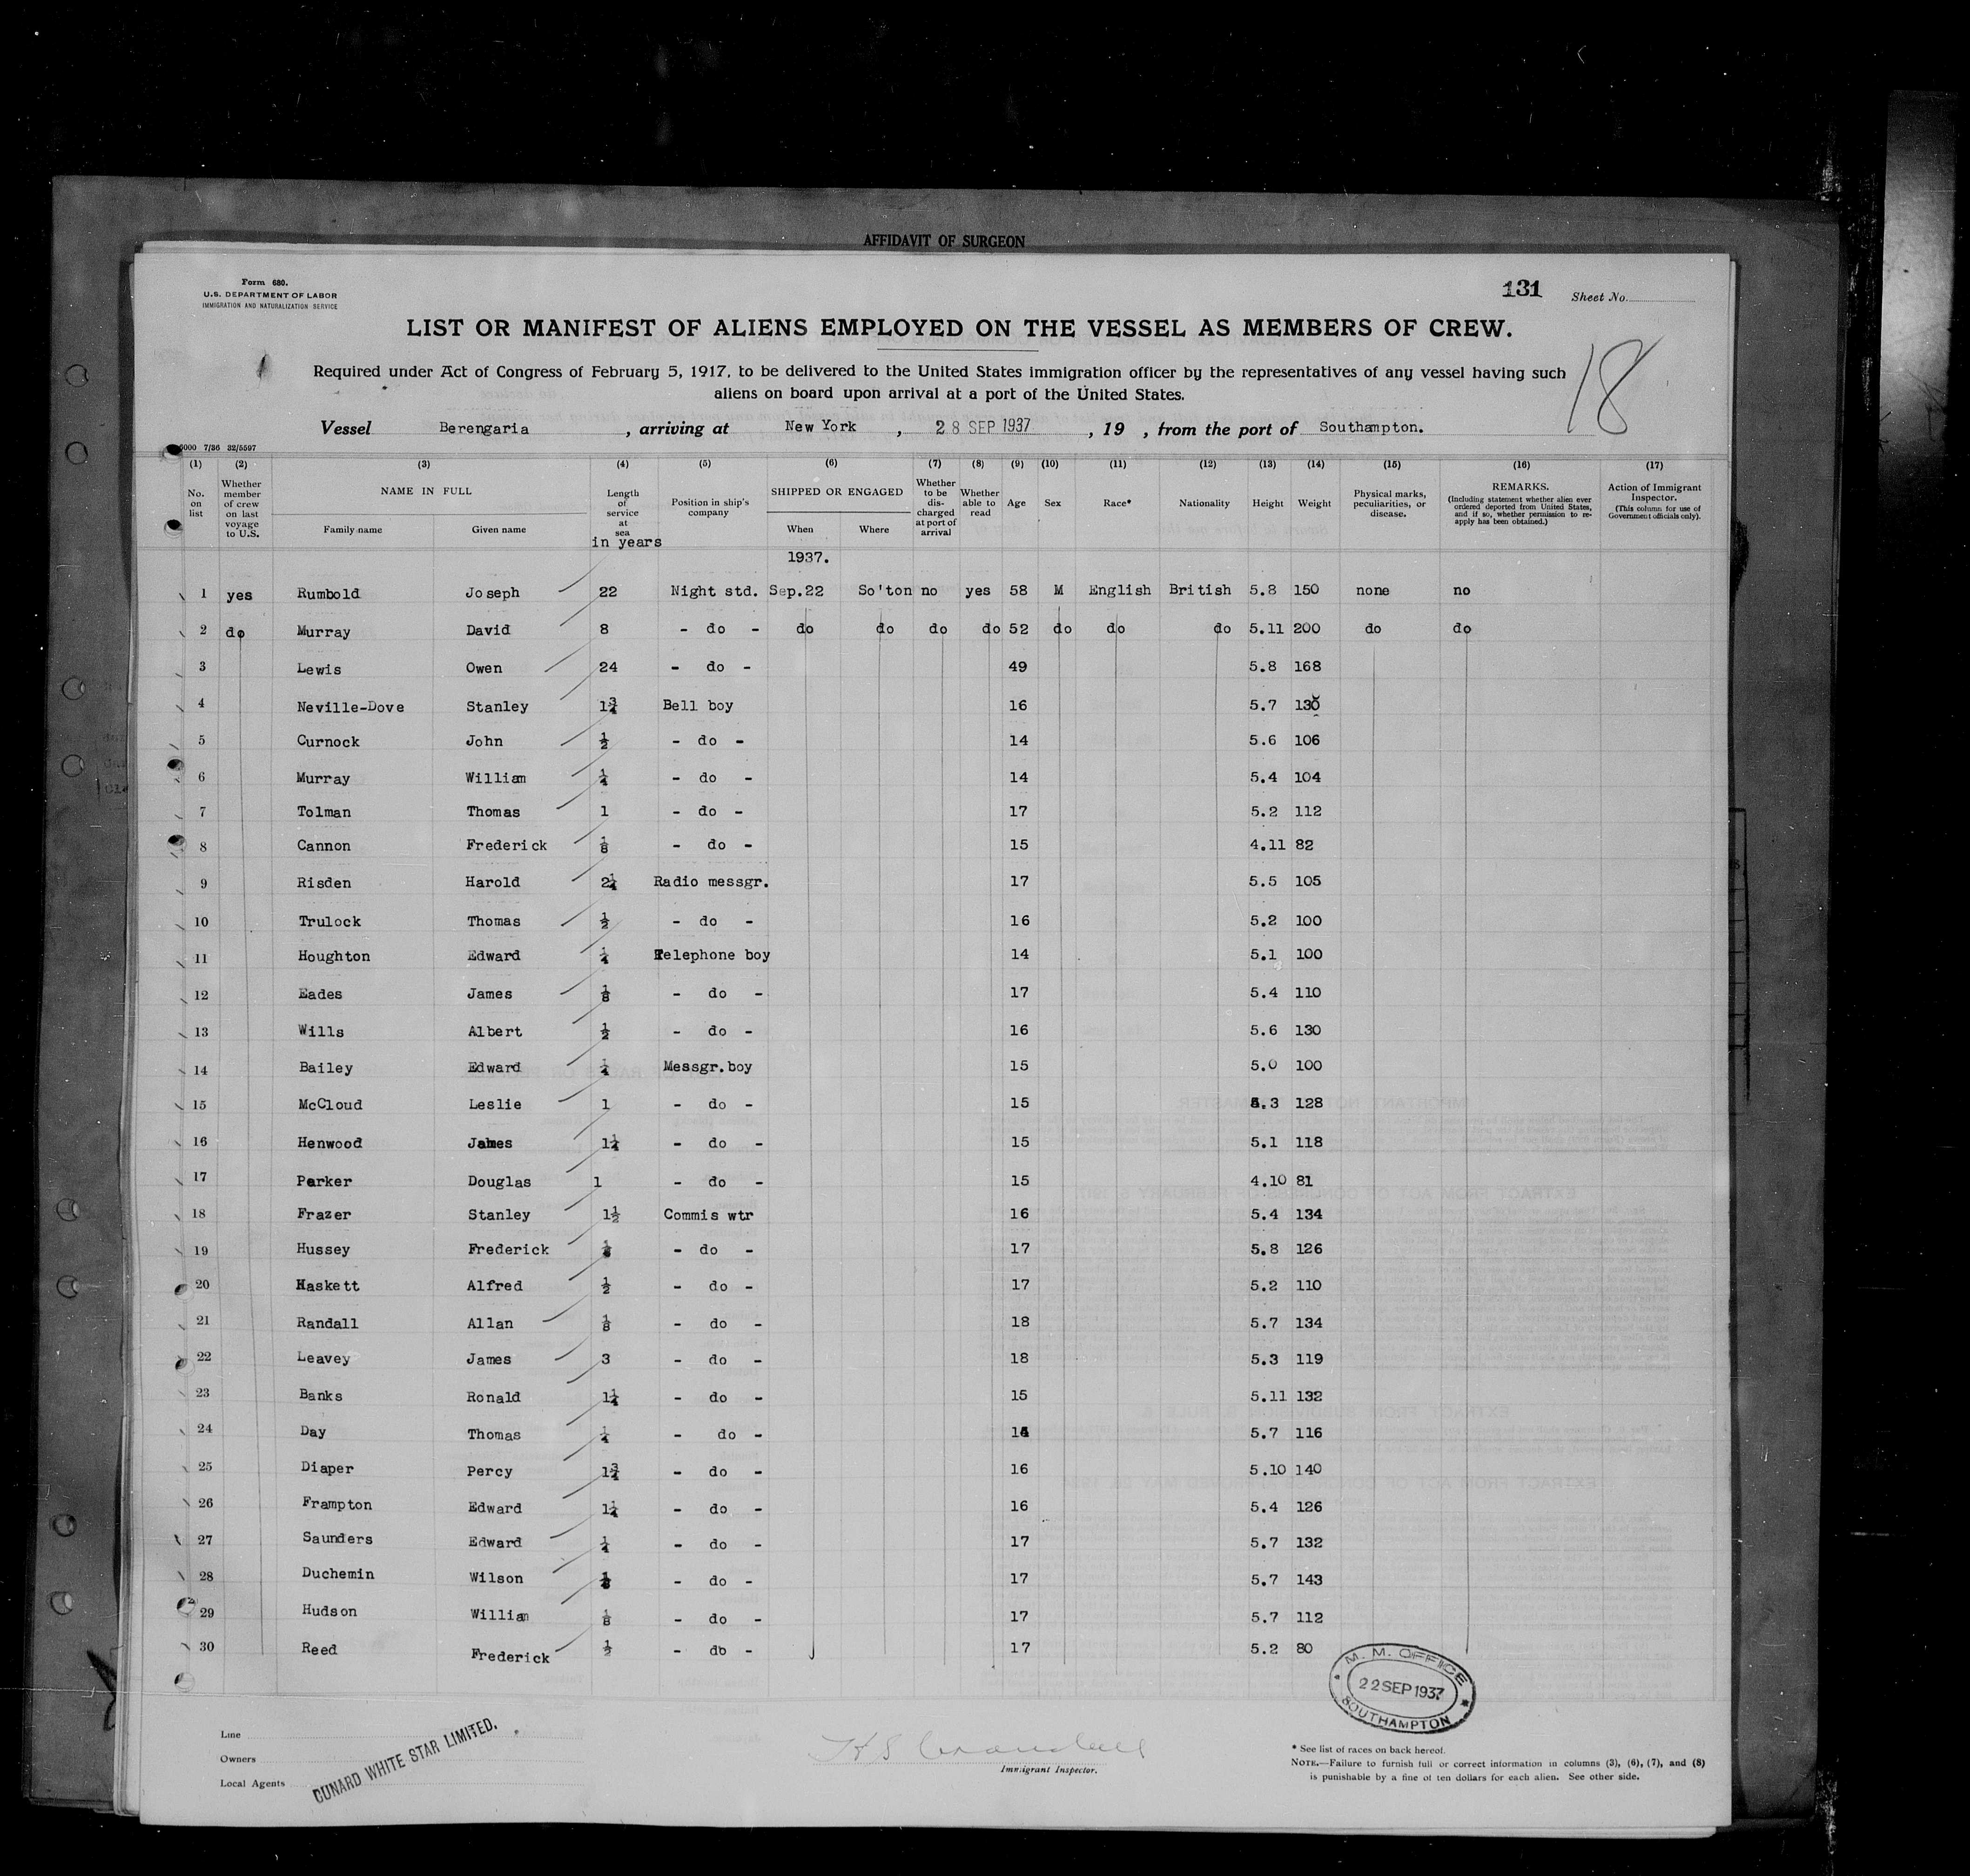 AFFIDAVIT OF SURGEON
Form 680.
U.S. DEPARTMENT OF LABOR
IMMIGRATION AND NATURALIZATION SERVICE
131 Sheet No.
LIST OR MANIFEST OF ALIENS EMPLOYED ON THE VESSEL AS MEMBERS OF CREW.
18
Required under Act of Congress of February 5, 1917, to be delivered to the United States immigration officer by the representatives of any vessel having such
aliens on board upon arrival at a port of the United States.
Vessel Berengaria , arriving at New York , 28 SEP 1937 , 19 , from the port of Southampton.
5000 7/36 32/5597
(1) (2) (3) (4) (5) (6) (7) (8) (9) (10) (11) (12) (13) (14) (15) (16) (17)
No. on list
Whether member of crew on last voyage to U.S.
NAME IN FULL
Family name Given name
Length of service at sea
in years
Position in ship's company
SHIPPED OR ENGAGED
When Where
Whether to be discharged at port of arrival
Whether able to read
Age Sex Race* Nationality Height Weight
Physical marks, peculiarities, or disease.
REMARKS.
(Including statement whether alien ever ordered deported from United States, and if so, whether permission to re-apply has been obtained.)
Action of Immigrant Inspector.
(This column for use of Government officials only).
1937.
1 yes Rumbold Joseph 22 Night std. Sep.22 So'ton no yes 58 M English British 5.8 150 none no
2 do Murray David 8 - do - do do do do 52 do do do 5.11 200 do do
3 Lewis Owen 24 - do - 49 5.8 168
4 Neville-Dove Stanley 1¾ Bell boy 16 5.7 130
5 Curnock John ½ - do - 14 5.6 106
6 Murray William ¼ - do - 14 5.4 104
7 Tolman Thomas 1 - do - 17 5.2 112
8 Cannon Frederick ⅛ - do - 15 4.11 82
9 Risden Harold 2¼ Radio messgr. 17 5.5 105
10 Trulock Thomas ½ - do - 16 5.2 100
11 Houghton Edward ¼ Telephone boy 14 5.1 100
12 Eades James ⅛ - do - 17 5.4 110
13 Wills Albert ½ - do - 16 5.6 130
14 Bailey Edward ¼ Messgr.boy 15 5.0 100
15 McCloud Leslie 1 - do - 15 5.3 128
16 Henwood James 1¼ - do - 15 5.1 118
17 Parker Douglas 1 - do - 15 4.10 81
18 Frazer Stanley 1½ Commis wtr 16 5.4 134
19 Hussey Frederick - do - 17 5.8 126
20 Haskett Alfred ½ - do - 17 5.2 110
21 Randall Allan ⅛ - do - 18 5.7 134
22 Leavey James 3 - do - 18 5.3 119
23 Banks Ronald 1¼ - do - 15 5.11 132
24 Day Thomas ¼ - do - 5.7 116
25 Diaper Percy 1¾ - do - 16 5.10 140
26 Frampton Edward 1¼ - do - 16 5.4 126
27 Saunders Edward ¼ - do - 17 5.7 132
28 Duchemin Wilson - do - 17 5.7 143
29 Hudson William ⅛ - do - 17 5.7 112
30 Reed Frederick ½ - do - 17 5.2 80
M. M. OFFICE
22 SEP 1937
SOUTHAMPTON
Line
Owners
Local Agents
CUNARD WHITE STAR LIMITED.
Immigrant Inspector.
* See list of races on back hereof.
NOTE.—Failure to furnish full or correct information in columns (3), (6), (7), and (8)
is punishable by a fine of ten dollars for each alien. See other side.